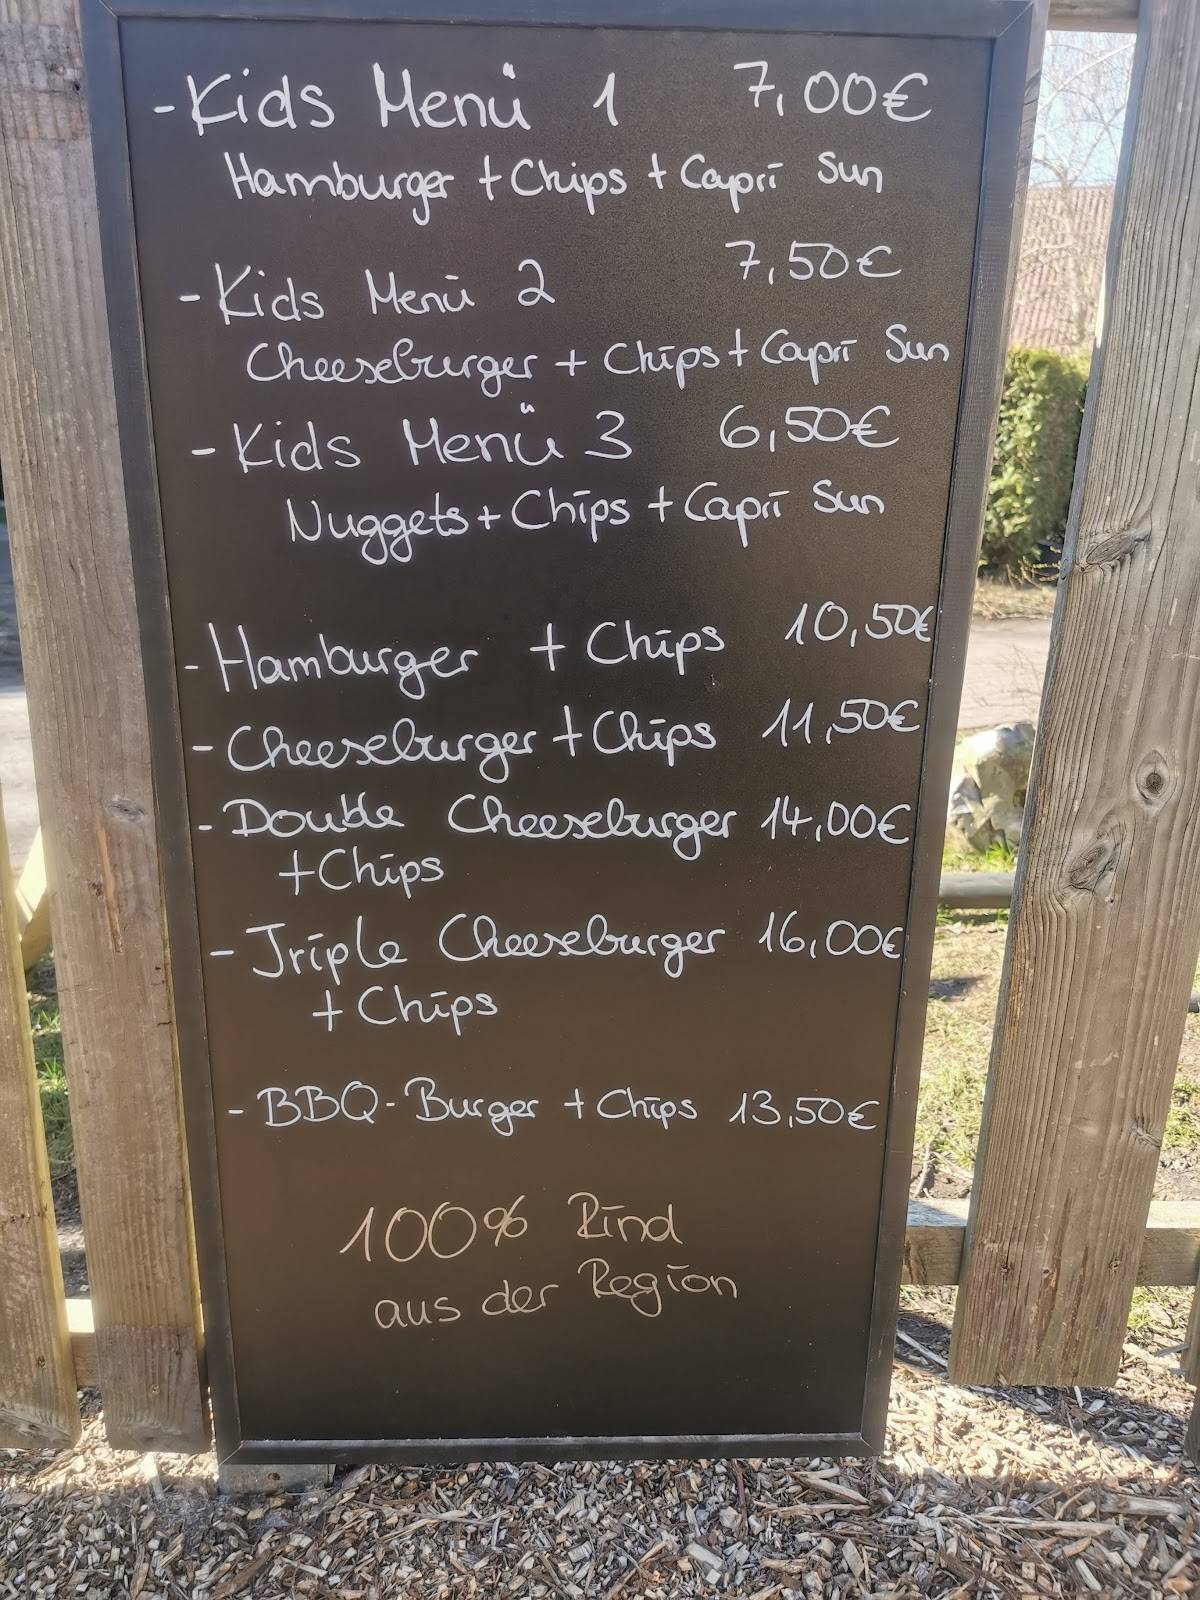 - Kids Menü 1 7,00€
Hamburger + Chips + Capri Sun
- Kids Menü 2 7,50€
Cheeseburger + Chips + Capri Sun
- Kids Menü 3 6,50€
Nuggets + Chips + Capri Sun
- Hamburger + Chips 10,50€
- Cheeseburger + Chips 11,50€
- Double Cheeseburger 14,00€
+ Chips
- Triple Cheeseburger 16,00€
+ Chips
- BBQ-Burger + Chips 13,50€
100% Rind
aus der Region